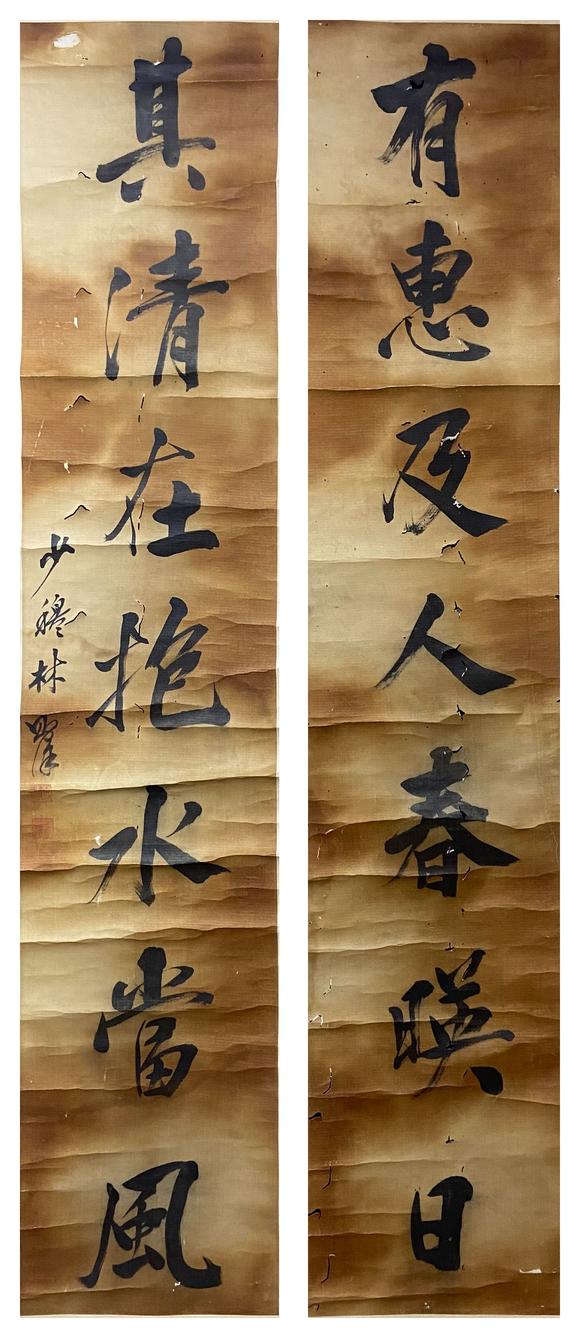 有惠及人春暎日
其清在抱水當風
少穆林